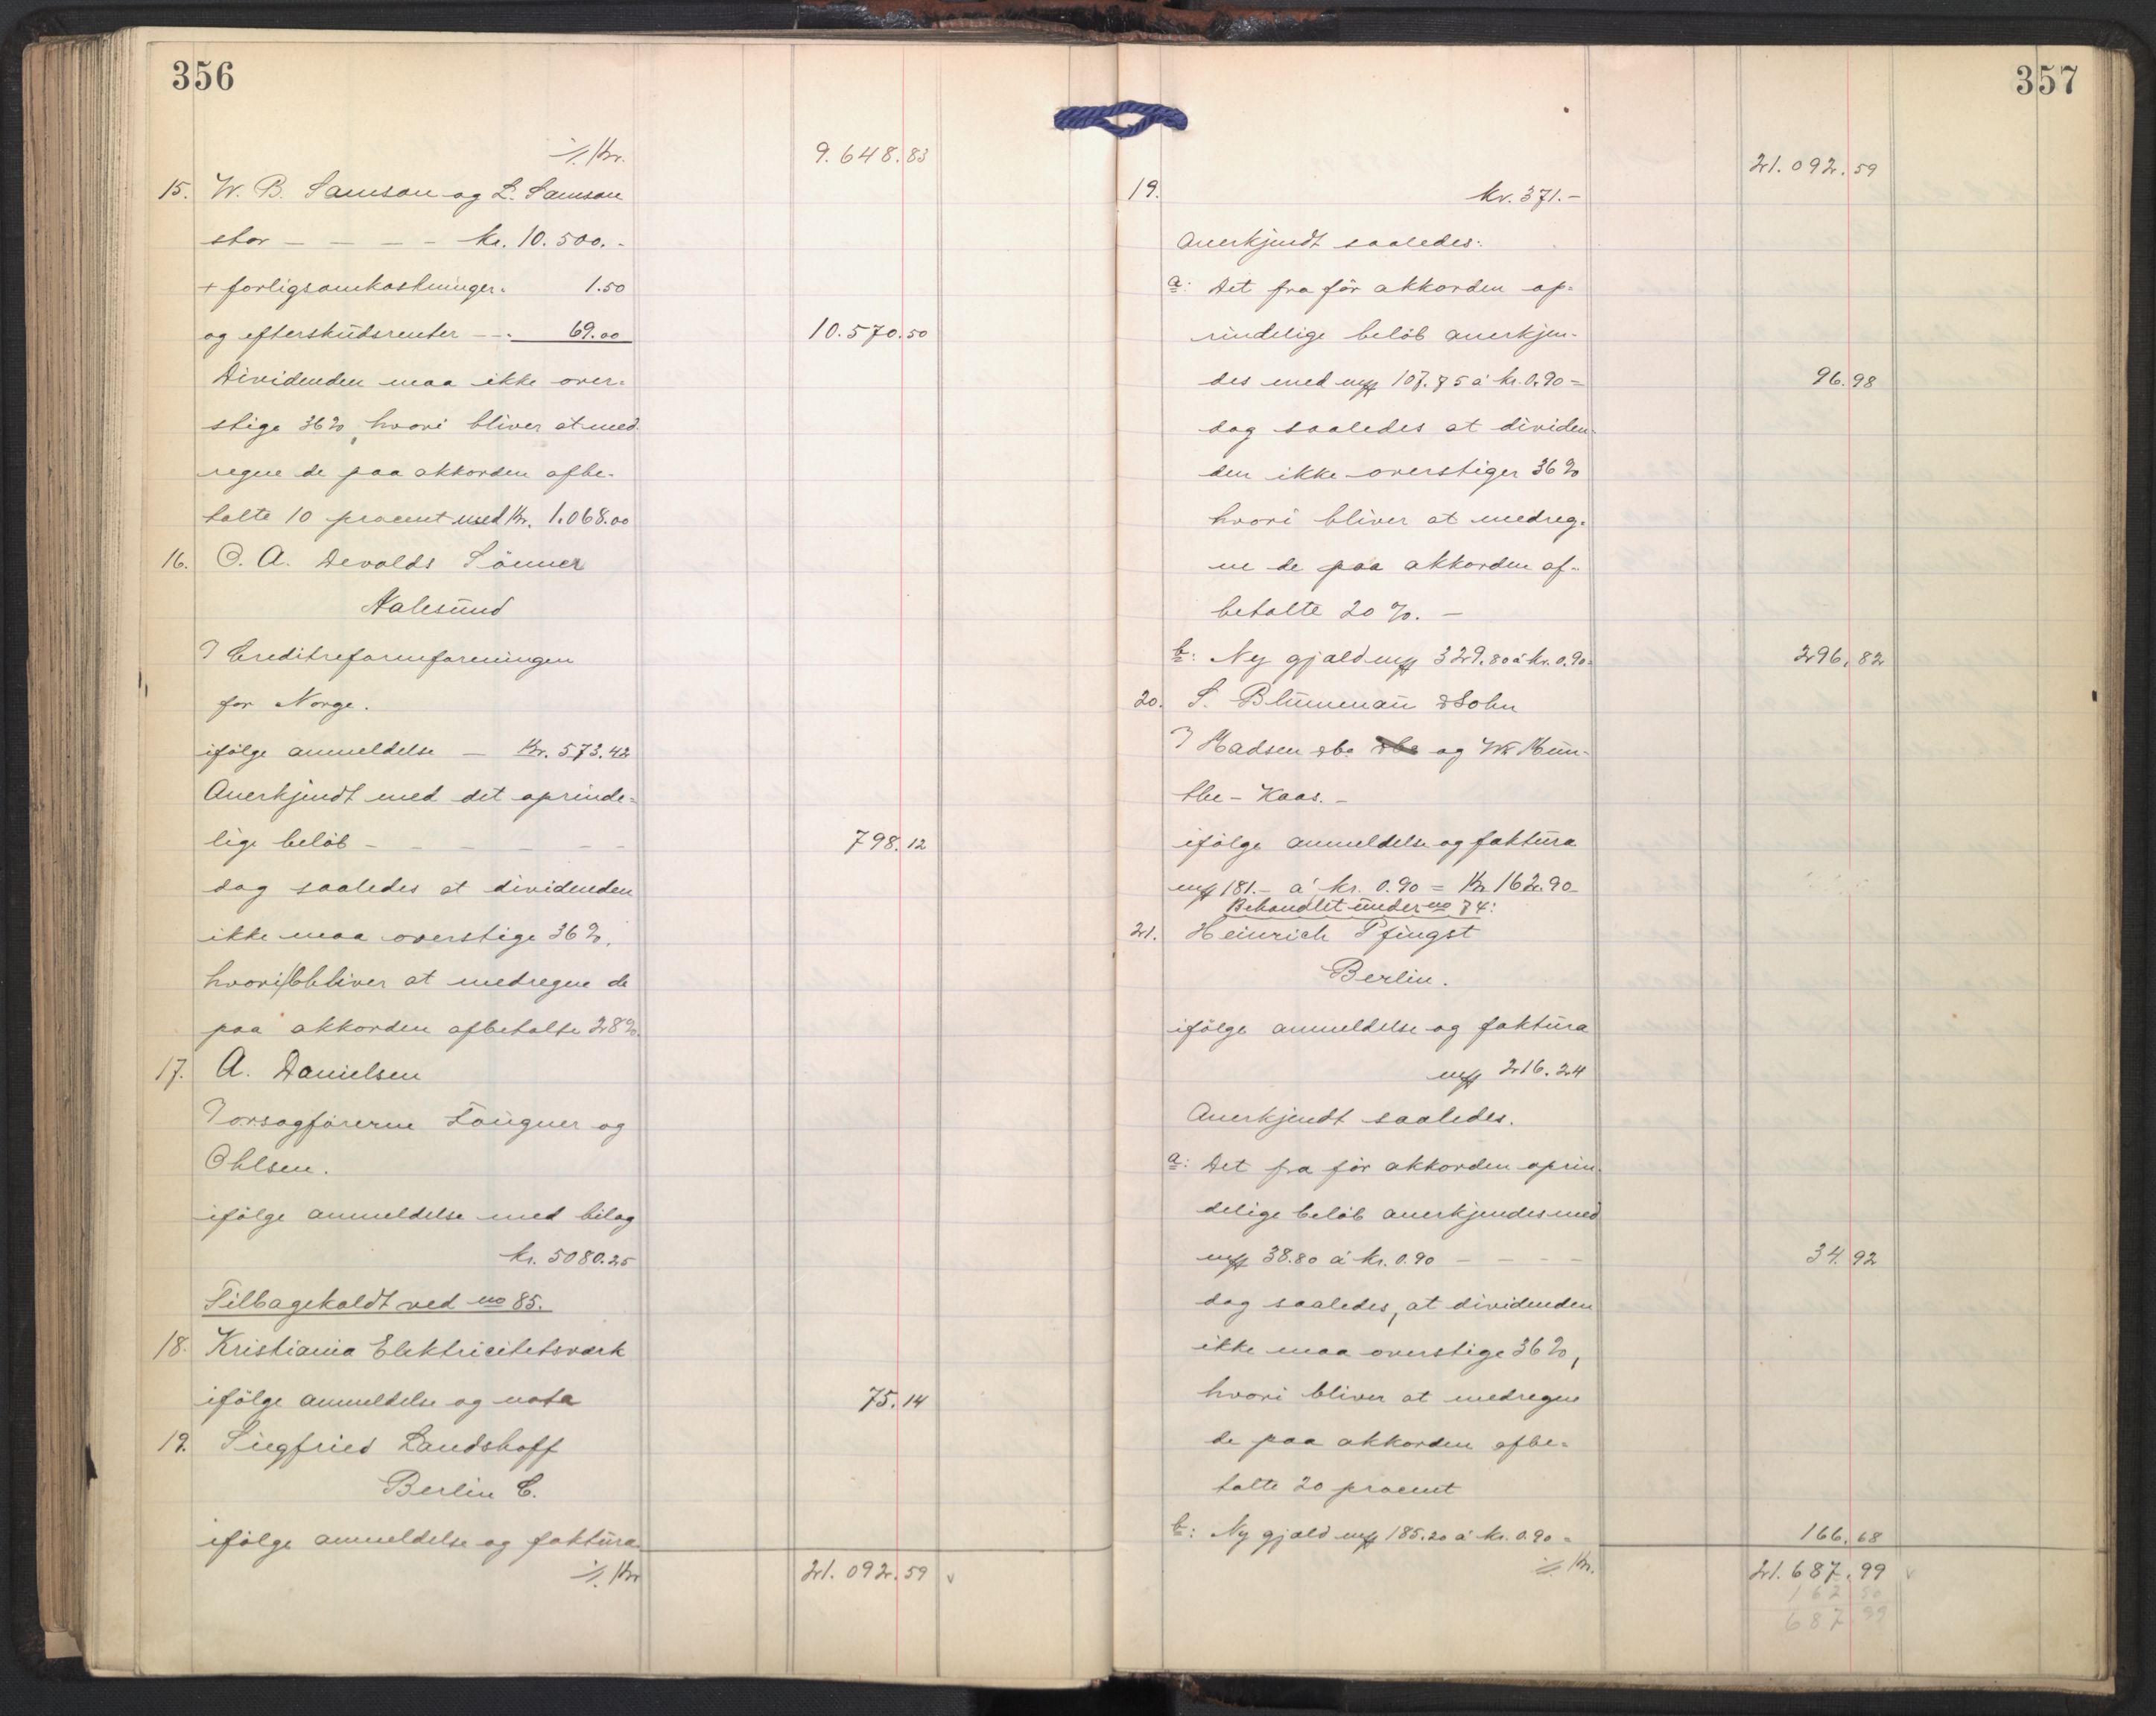 356
% Kr. 9.648.83
15. W. B. Samson og L. Samson
stor – – – – kr. 10.500.-
+ forligsomkostninger " 1.50
og efterskudsrenter – " 69.00 10.570.50
Dividenden maa ikke over-
stige 36%, hvori bliver at med
regne de paa akkorden afbe-
talte 10 procent med Kr. 1.068.00
16. O. A. Devolds Sönner
Aalesund
Creditreformforeningen
for Norge.
ifölge anmeldelse – Kr. 573.42
Anerkjendt med det oprinde-
lige belöb – – – – – – 798.12
dog saaledes at dividenden
ikke maa overstige 36%,
hvori bliver at medregne de
paa akkorden afbetalte 28%.
17. A. Danielsen
Torsagförerne Lougner og
Ohlsen.
ifölge anmeldelse med bilag
kr. 5080.25
Tilbagekaldt ved no 85.
18. Kristiania Elektricitetsværk
ifölge anmeldelse og nota 75.14
19. Siegfried Landshoff
Berlin C.
ifölge anmeldelse og faktura
% Kr 21.092.59 v
357
21.092.59
19. kr. 371.–
Anerkjendt saaledes:
a: Det fra för akkorden op-
rindelige belöb anerkjen-
des med mf 107.75 à kr. 0.90 = 96.98
dog saaledes at dividen-
den ikke overstiger 36%
hvori bliver at medreg-
ne de paa akkorden af-
betalte 20 %. –
b: Ny gjæld mf 329.80 à kr. 0.90 = 296.82
20. S. Blumenau & Sohn
Madsen og
– Kaas. –
ifölge anmeldelse og faktura
mf 181.– à kr. 0.90 = Kr 162.90
Behandlet under no 74:
21. Heinrich Pfingst
Berlin.
ifölge anmeldelse og faktura
mf 216.24
Anerkjendt saaledes.
a: Det fra för akkorden oprin-
delige belöb anerkjendes med
mf 38.80 à kr. 0.90 – – – – 34.92
dog saaledes, at dividenden
ikke maa overstige 36%,
hvori bliver at medregne
de paa akkorden afbe-
talte 20 procent
b: Ny gjæld mf 185.20 à kr. 0.90 = 166.68
% Kr. 21.687.99 v
162 90
687 99